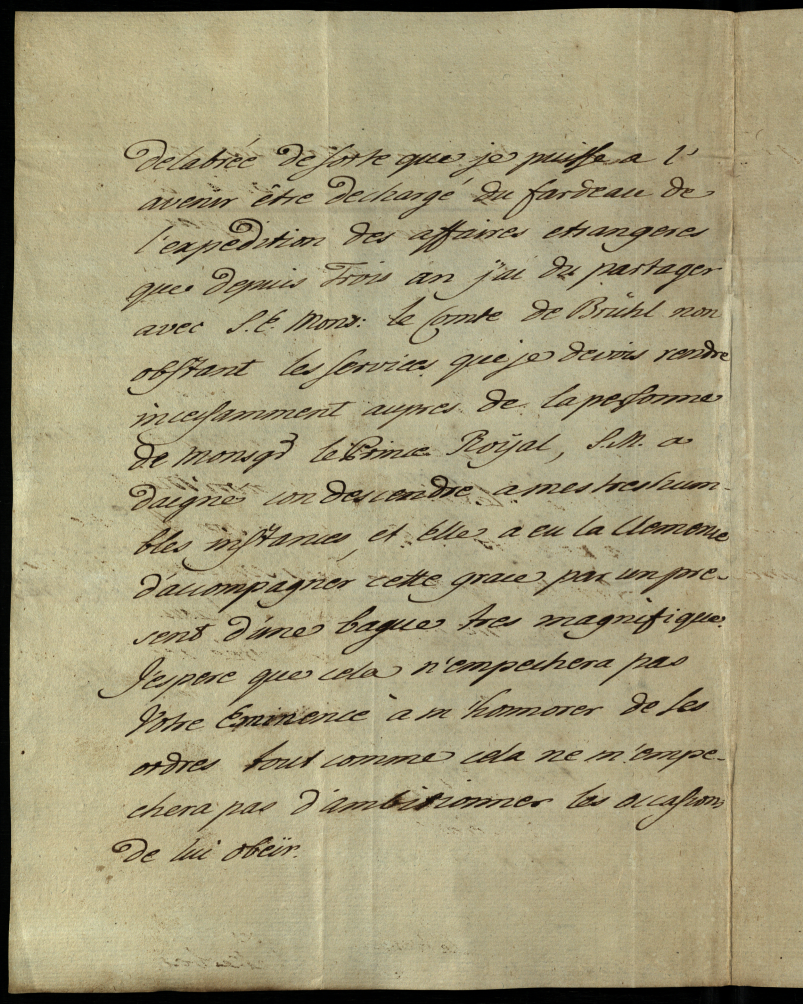 delabreé de sorte que je puisse a l'
avenir être dechargé du fardeau de
l'expedition des affaires etrangeres
que depuis Trois an j'ai du partager
avec S. E. Mons: le Comte de Brühl non
obstant les services que je devois rendre
incessamment aupres de la personne
de Monsgr le Prince Roÿal, S. M. a
daigné condescendre a mes tres hum-
bles instances, et Elle a eu la Clemence
d'accompagner cette grace par un pre-
sent d'une bague tres magnifique.
J'espere que cela n'empechera pas
Votre Eminence à m'honorer de ses
ordres tout comme cela ne m'empe-
chera pas d'ambitionner les occasions
de lui obeïr.